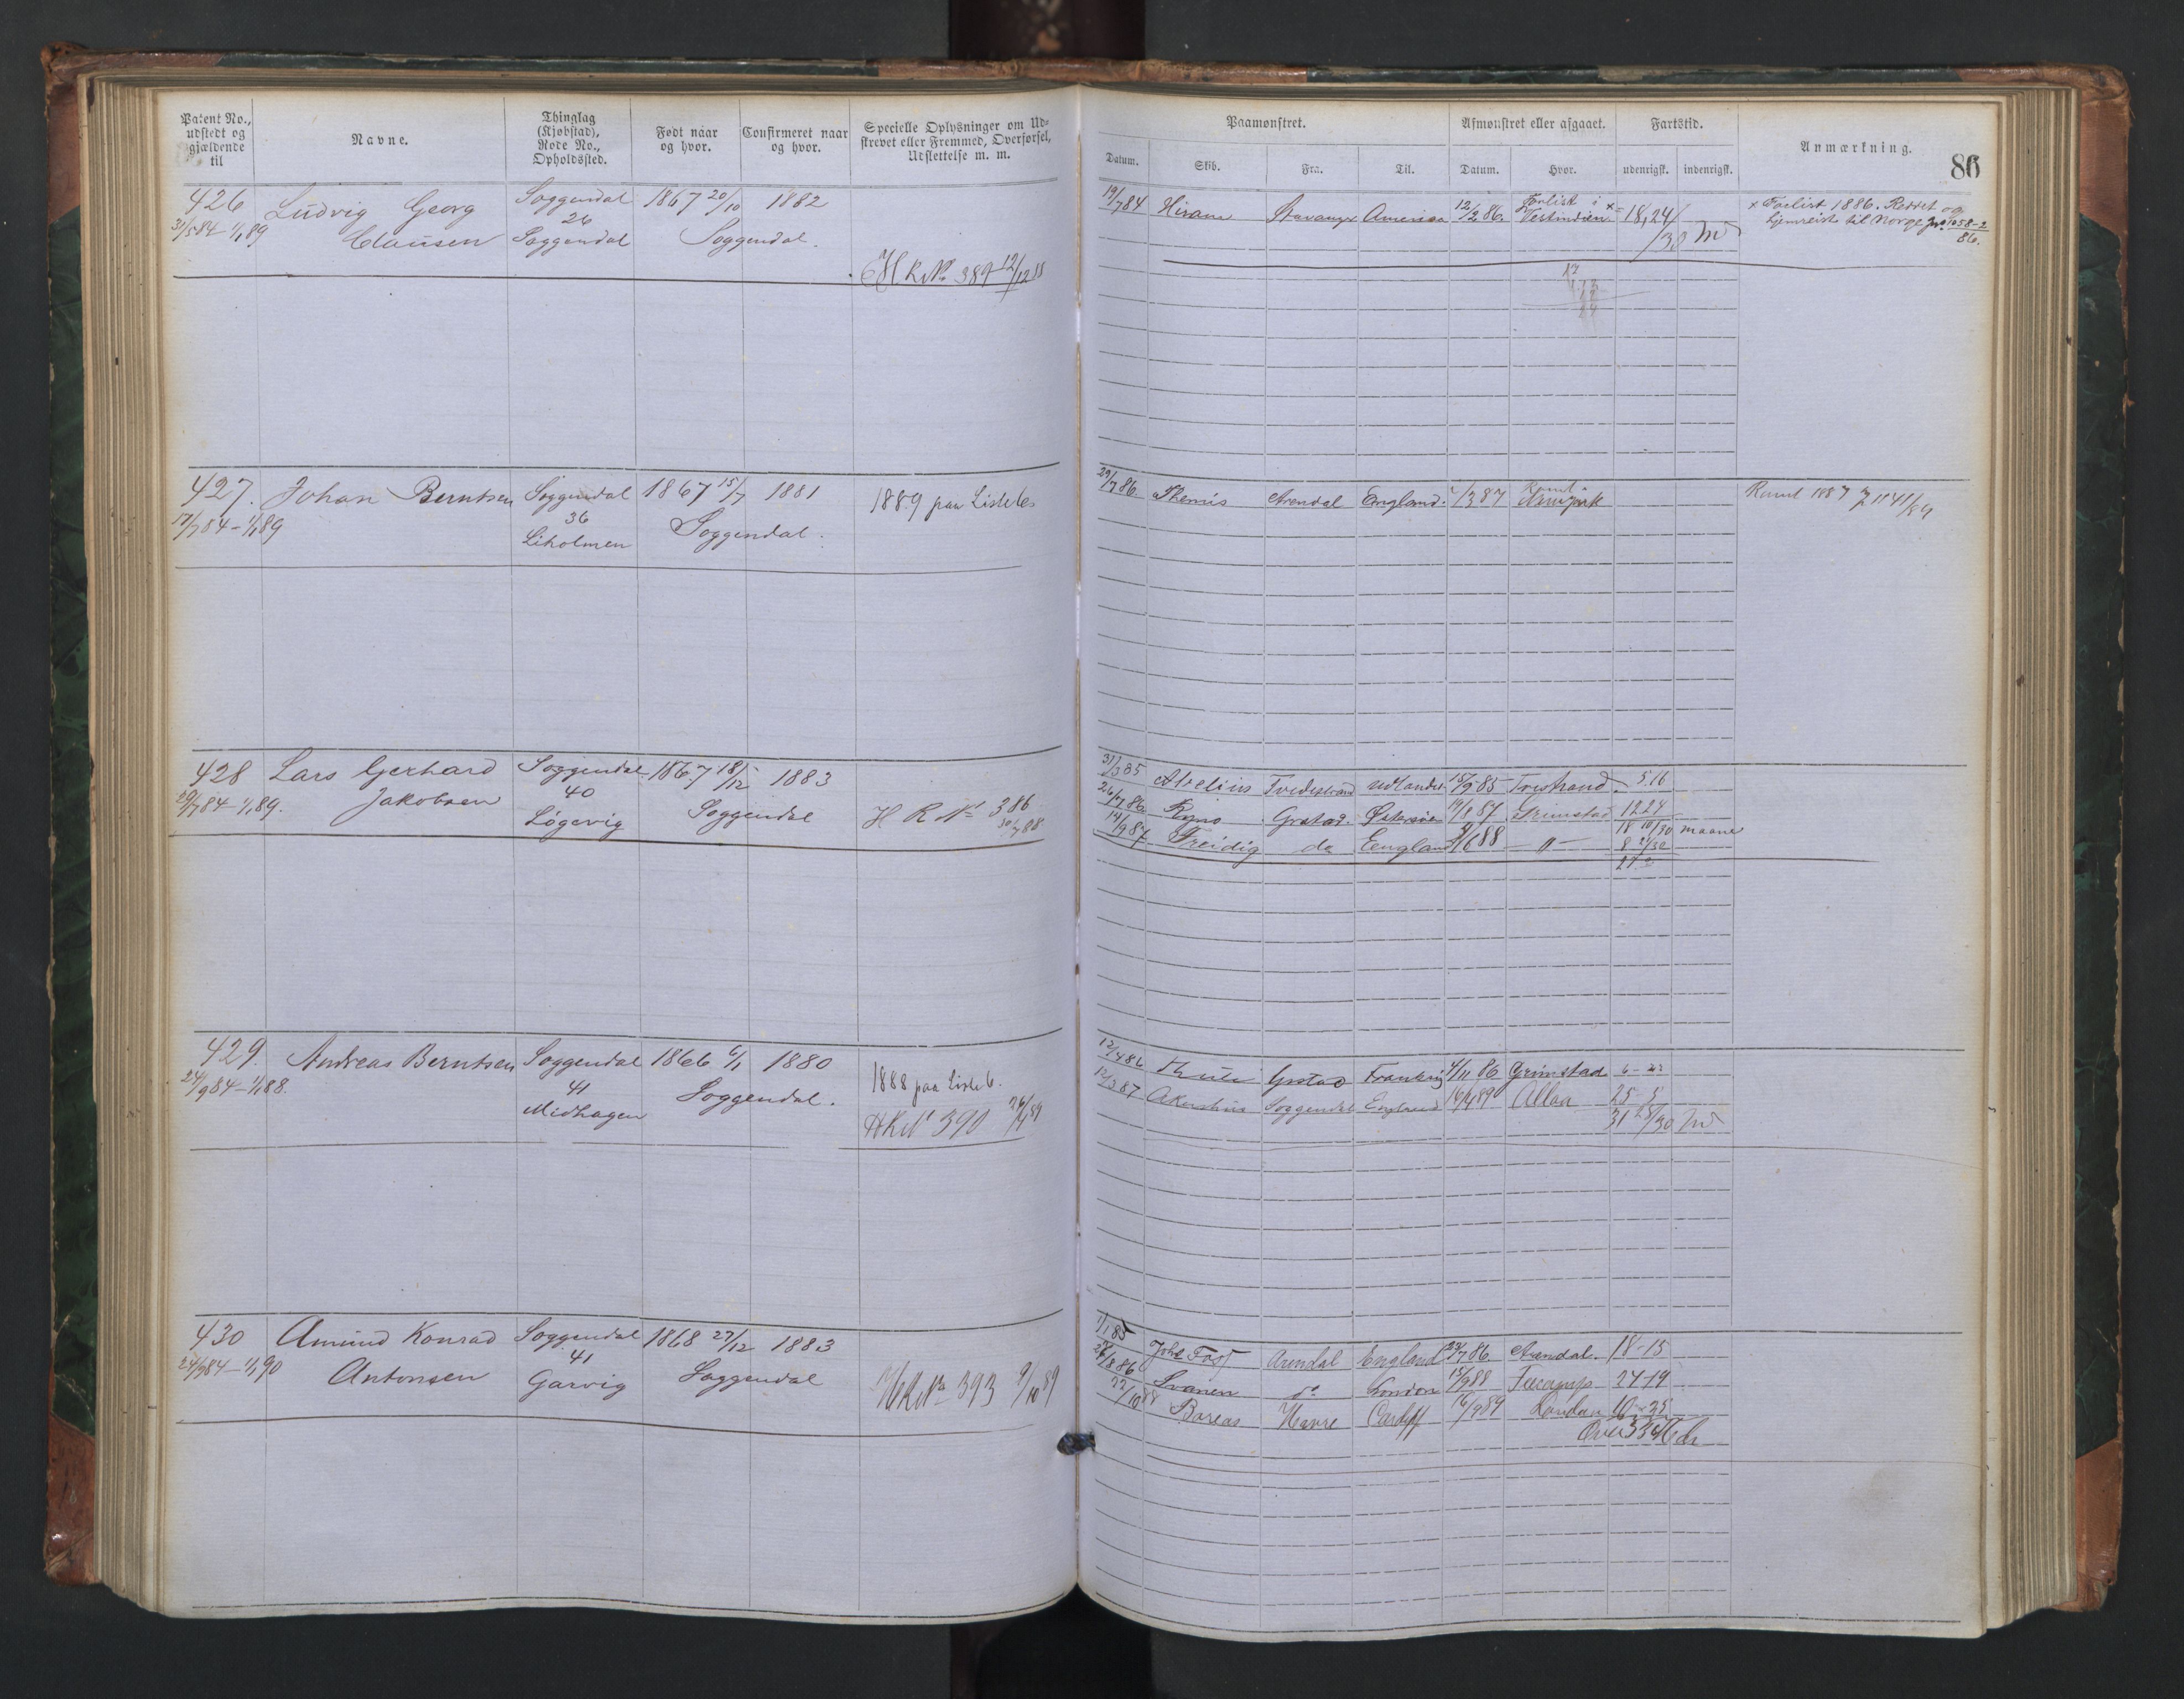 Patent No., udstedt og gjældende til
Navne.
Thinglag (Kjøbstad), Rode No., Opholdssted.
Født naar og hvor.
Confirmeret naar og hvor.
Specielle Oplysninger om Udskrevet eller Fremmed, Overførsel, Udslettelse m. m.
Paamønstret.
Afmønstret eller afgaaet.
Fartstid.
Anmærkning.
86
Datum. Skib. Fra. Til. Datum. Hvor. udenrigsk. indenrigsk.
426 Ludvig Georg Soggendal 1867 20/10 1882
31/5 84 - 1/1 89 Clausen 26 Soggendal Soggendal.
H R No 389 12/12
19/7 84 Hiram Stavanger America 12/2 86 Forlist i Vestindien x 18,24/30 M
x Forlist 1886. Reddet og
hjemreist til Norge Jno 1058-2
86.
427. Johan Berntsen Soggendal 1867 15/7 1881
17/7 84 - 1/1 89 36 Soggendal.
Liholmen
1889 paa Liste 6
29/7 86 Themis Arendal England /3 87
428 Lars Gerhard Soggendal 1867 18/12 1883
29/7 84 - 1/1 89. Jakobsen 40 Soggendal
Løgevig
H R No 386
31/3 85 Atrelius Tvedestrand Udlandet 15/9 85 5.16
26/7 86 Grstad. Østersøen 19/8 87 Grimstad 12 24
14/9 87 Freidig do England 9/6 88 — " — 18 10/30 maane
8 21/30
429. Andreas Berntsen Soggendal 1866 6/1 1880
24/9 84 - 1/1 88. 41 Soggendal.
Midhagen
1888 paa Liste 6.
H R No 390
12/4 86 Grstad 4/11 86 Grimstad 6-23
12/3 87 Akershus Soggendal England 16/4 89 Alloa 25-5
31 28/30 M
430 Amund Konrad Soggendal 1868 27/12 1883
24/9 84 - 1/1 90 Antonsen 41 Soggendal
Garvig
H R No 393 9/10 89
1/1 85 Arendal England 24/7 86. Arendal. 18-15
26/8 86 Svanen do London 15/9 88 24-19
22/10 88 Boreas Havre Cardiff 16/9 89 London 10-25
Over 53 Mdr